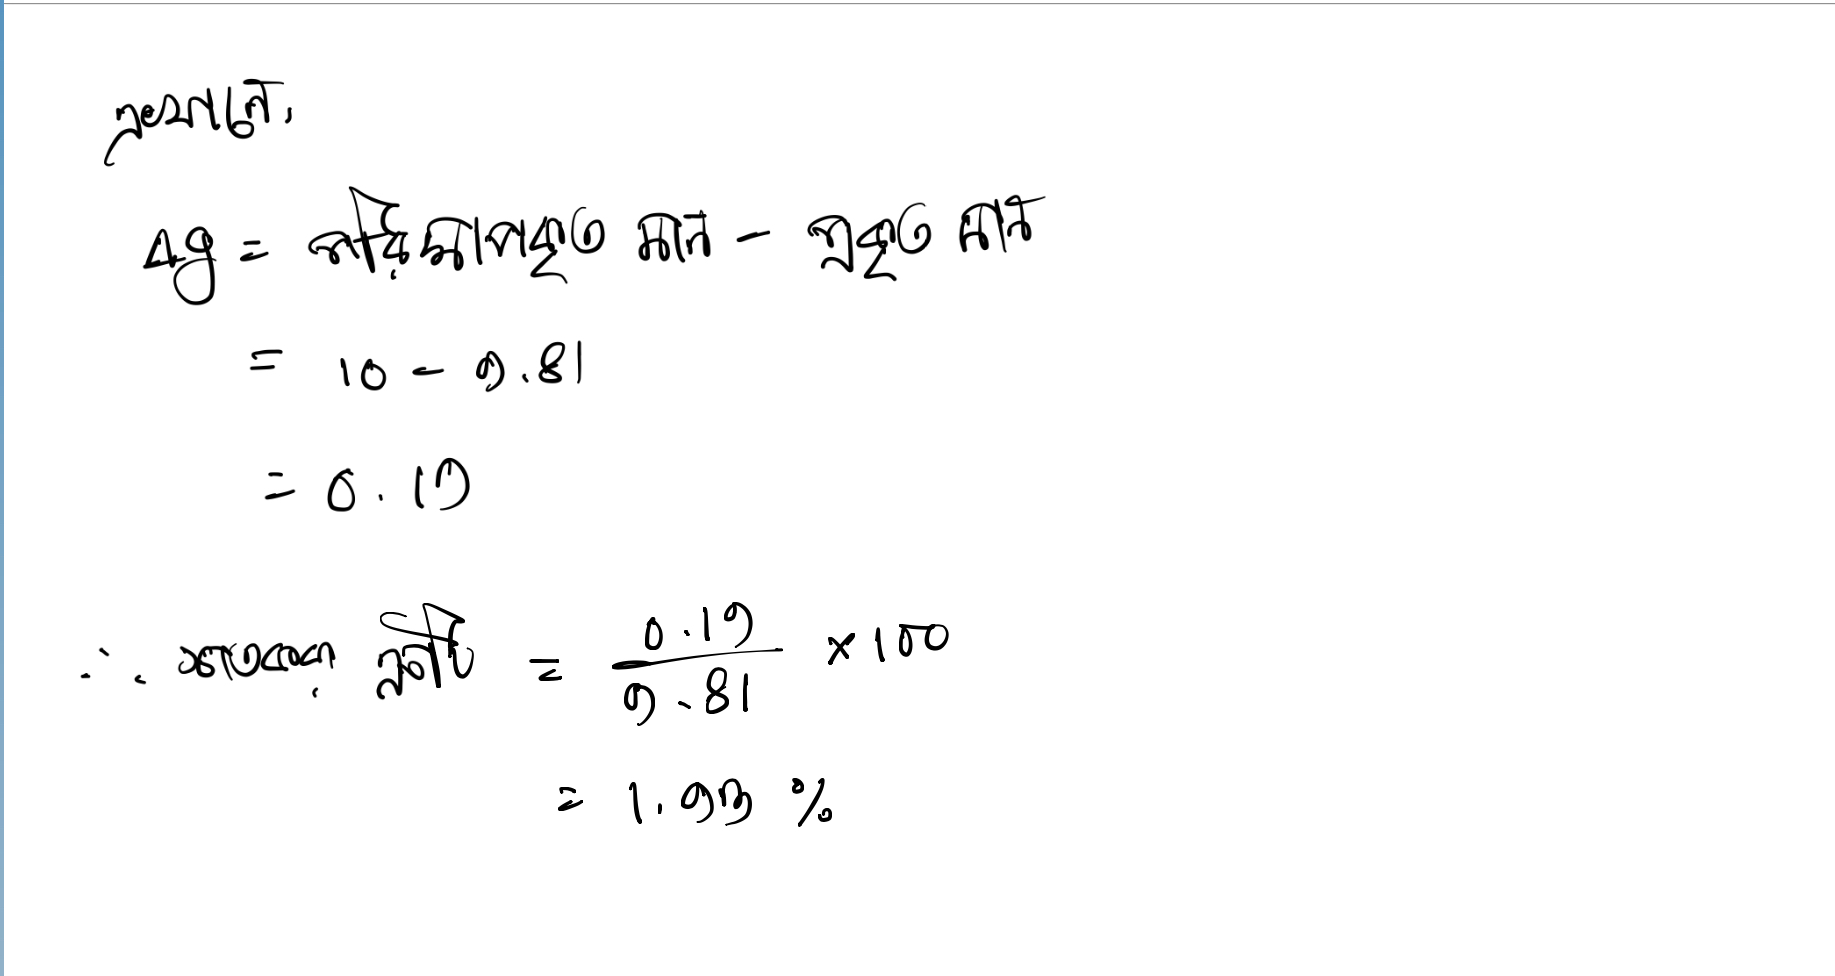 এখানে,
Δg = পরিমাপকৃত মান - প্রকৃত মান
= 10 - 9.81
= 0.19
∴ শতকরা ত্রুটি = 0.19/9.81 × 100
= 1.93 %